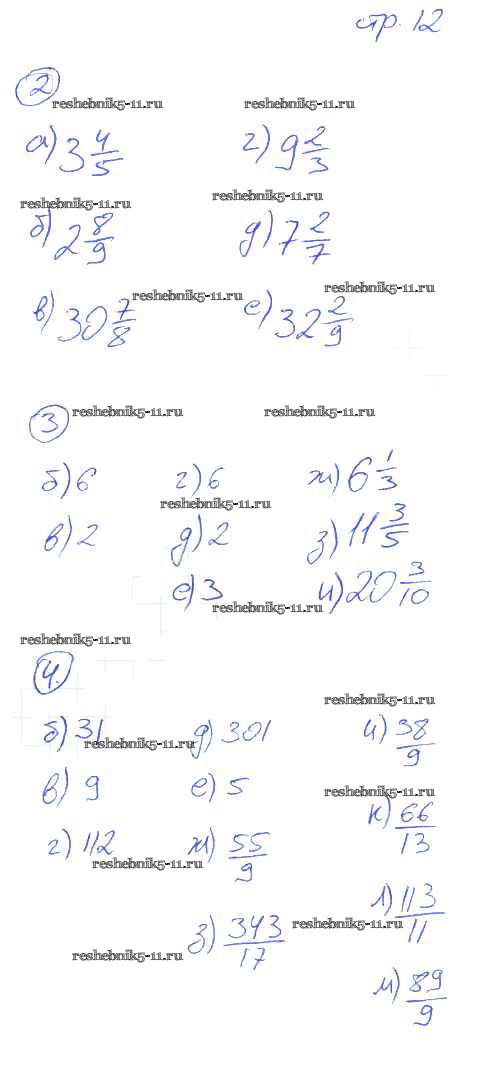 стр. 12
2
reshebnik5-11.ru reshebnik5-11.ru
а) 3 4/5 г) 9 2/3
reshebnik5-11.ru reshebnik5-11.ru
б) 2 8/9 д) 7 2/7
reshebnik5-11.ru reshebnik5-11.ru
в) 30 7/8 е) 32 2/9
3 reshebnik5-11.ru reshebnik5-11.ru
б) 6 г) 6 ж) 6 1/3
reshebnik5-11.ru
в) 2 д) 2 з) 11 3/5
е) 3 и) 20 3/10
reshebnik5-11.ru
reshebnik5-11.ru
4.
reshebnik5-11.ru
б) 31 д) 301 и) 38/9
reshebnik5-11.ru
в) 9 е) 5
reshebnik5-11.ru
к) 66/13
г) 112 ж) 55/9
reshebnik5-11.ru
л) 113/11
з) 343/17
reshebnik5-11.ru
reshebnik5-11.ru
м) 89/9